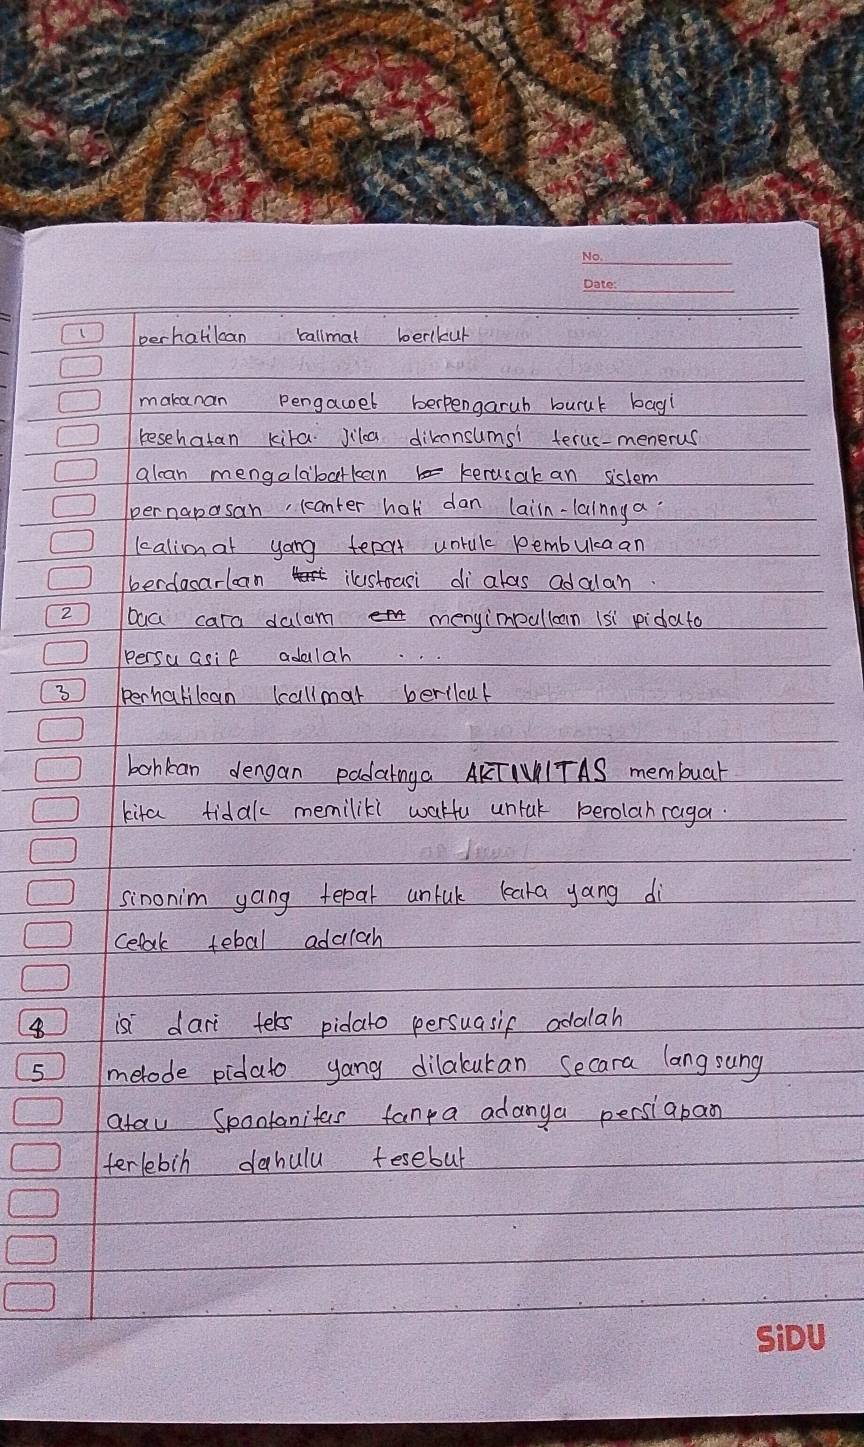 No.
Date:
1 perhatikan kalimat berikut
makanan pengawet berpengaruh buruk bagi
kesehatan kita. Jika dikonsumsi terus-menerus
akan mengakibatkan kerusakan sistem
pernapasan, kanker hati dan laiin-lainnya.
kalimat yang tepat untuk pembukaan
berdasarkan ilustrasi di atas adalah.
2 Dua cara dalam menyimpulkan isi pidato
persuasif adalah ...
3 perhatikan kalimat berikut
bahkan dengan padatnya AKTIVITAS membuat
kita tidak memiliki waktu untuk berolahraga.
sinonim yang tepat untuk kata yang di
cetak tebal adalah
4 isi dari teks pidato persuasif adalah
5 metode pidato yang dilakukan secara langsung
atau spontanitas tanpa adanya persiapan
terlebih dahulu tesebut
SiDU